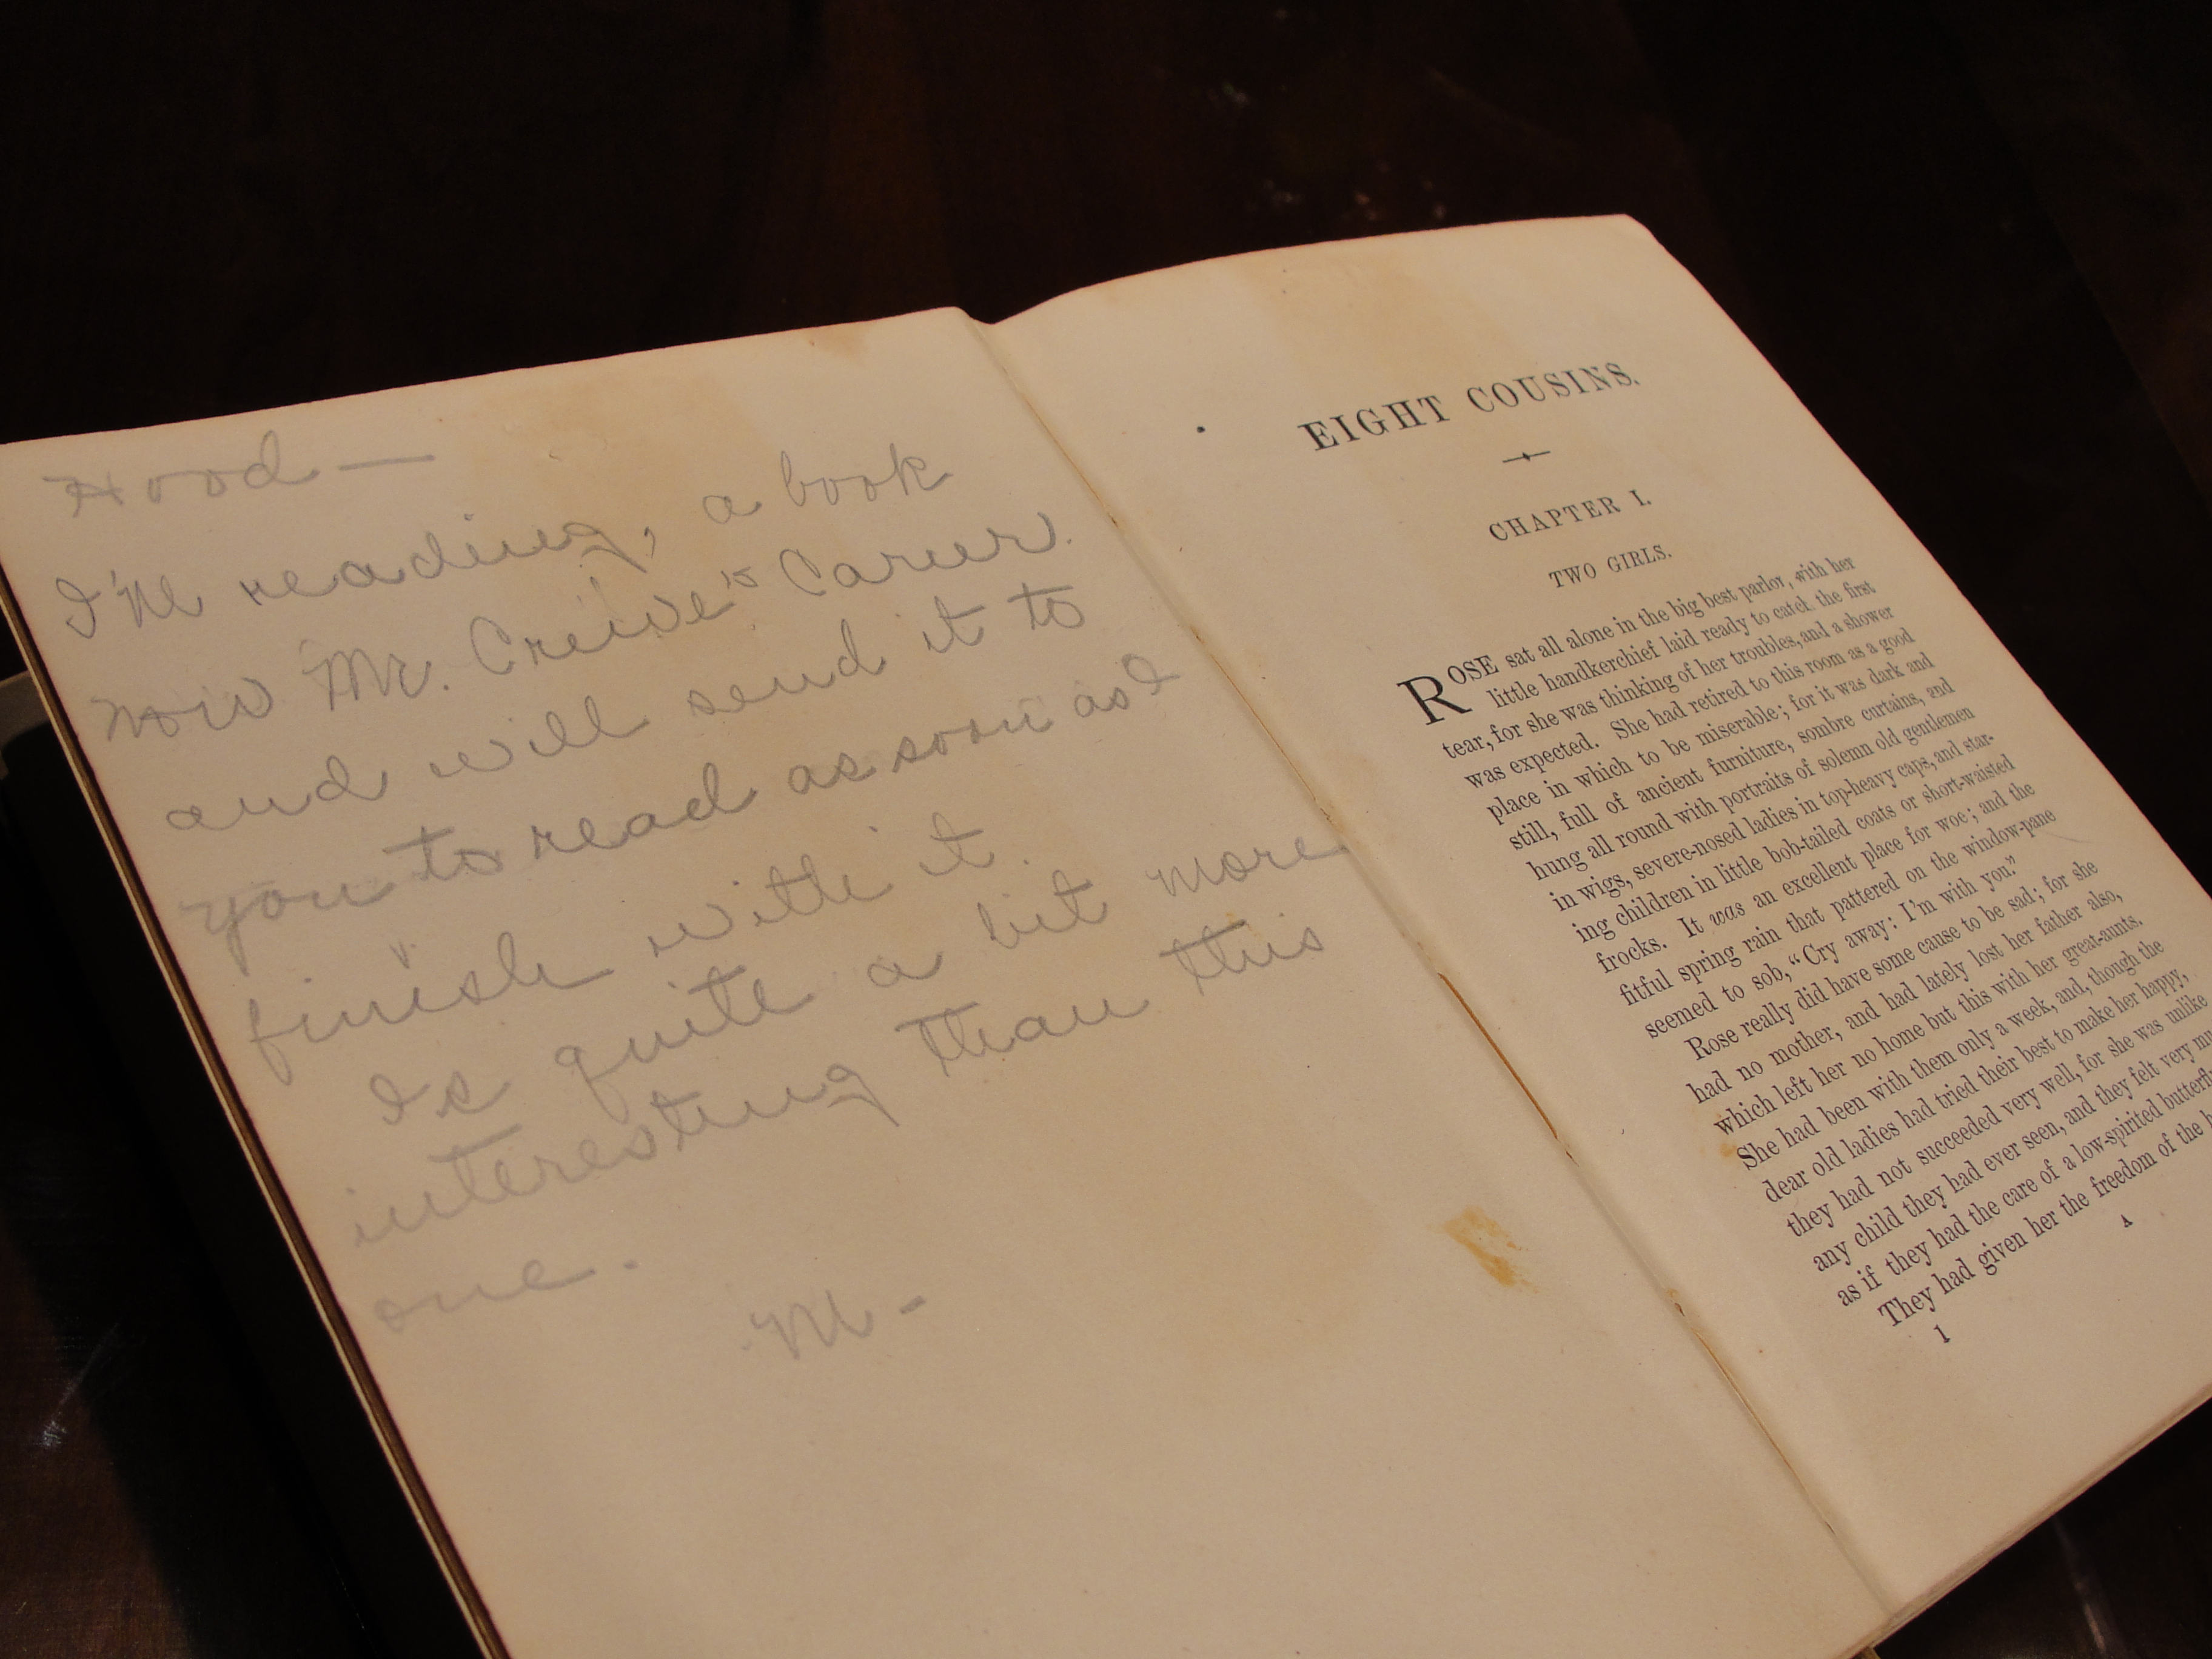 Hood —
I'm reading, a book
now Mr. Creive's Career.
and will send it to
you to read as soon as I
finish with it.
Is quite a bit more
interesting than this
one.
M -
EIGHT COUSINS.
CHAPTER I.
TWO GIRLS.
ROSE sat all alone in the big best parlor, with her
little handkerchief laid ready to catch the first
tear, for she was thinking of her troubles, and a shower
was expected. She had retired to this room as a good
place in which to be miserable; for it was dark and
still, full of ancient furniture, sombre curtains, and
hung all round with portraits of solemn old gentlemen
in wigs, severe-nosed ladies in top-heavy caps, and star-
ing children in little bob-tailed coats or short-waisted
frocks. It was an excellent place for woe; and the
fitful spring rain that pattered on the window-pane
seemed to sob, “Cry away: I'm with you.”
Rose really did have some cause to be sad; for she
had no mother, and had lately lost her father also,
which left her no home but this with her great-aunts.
She had been with them only a week, and, though the
dear old ladies had tried their best to make her happy,
they had not succeeded very well, for she was unlike
any child they had ever seen, and they felt very
as if they had the care of a low-spirited
They had given her the freedom of the
1 A